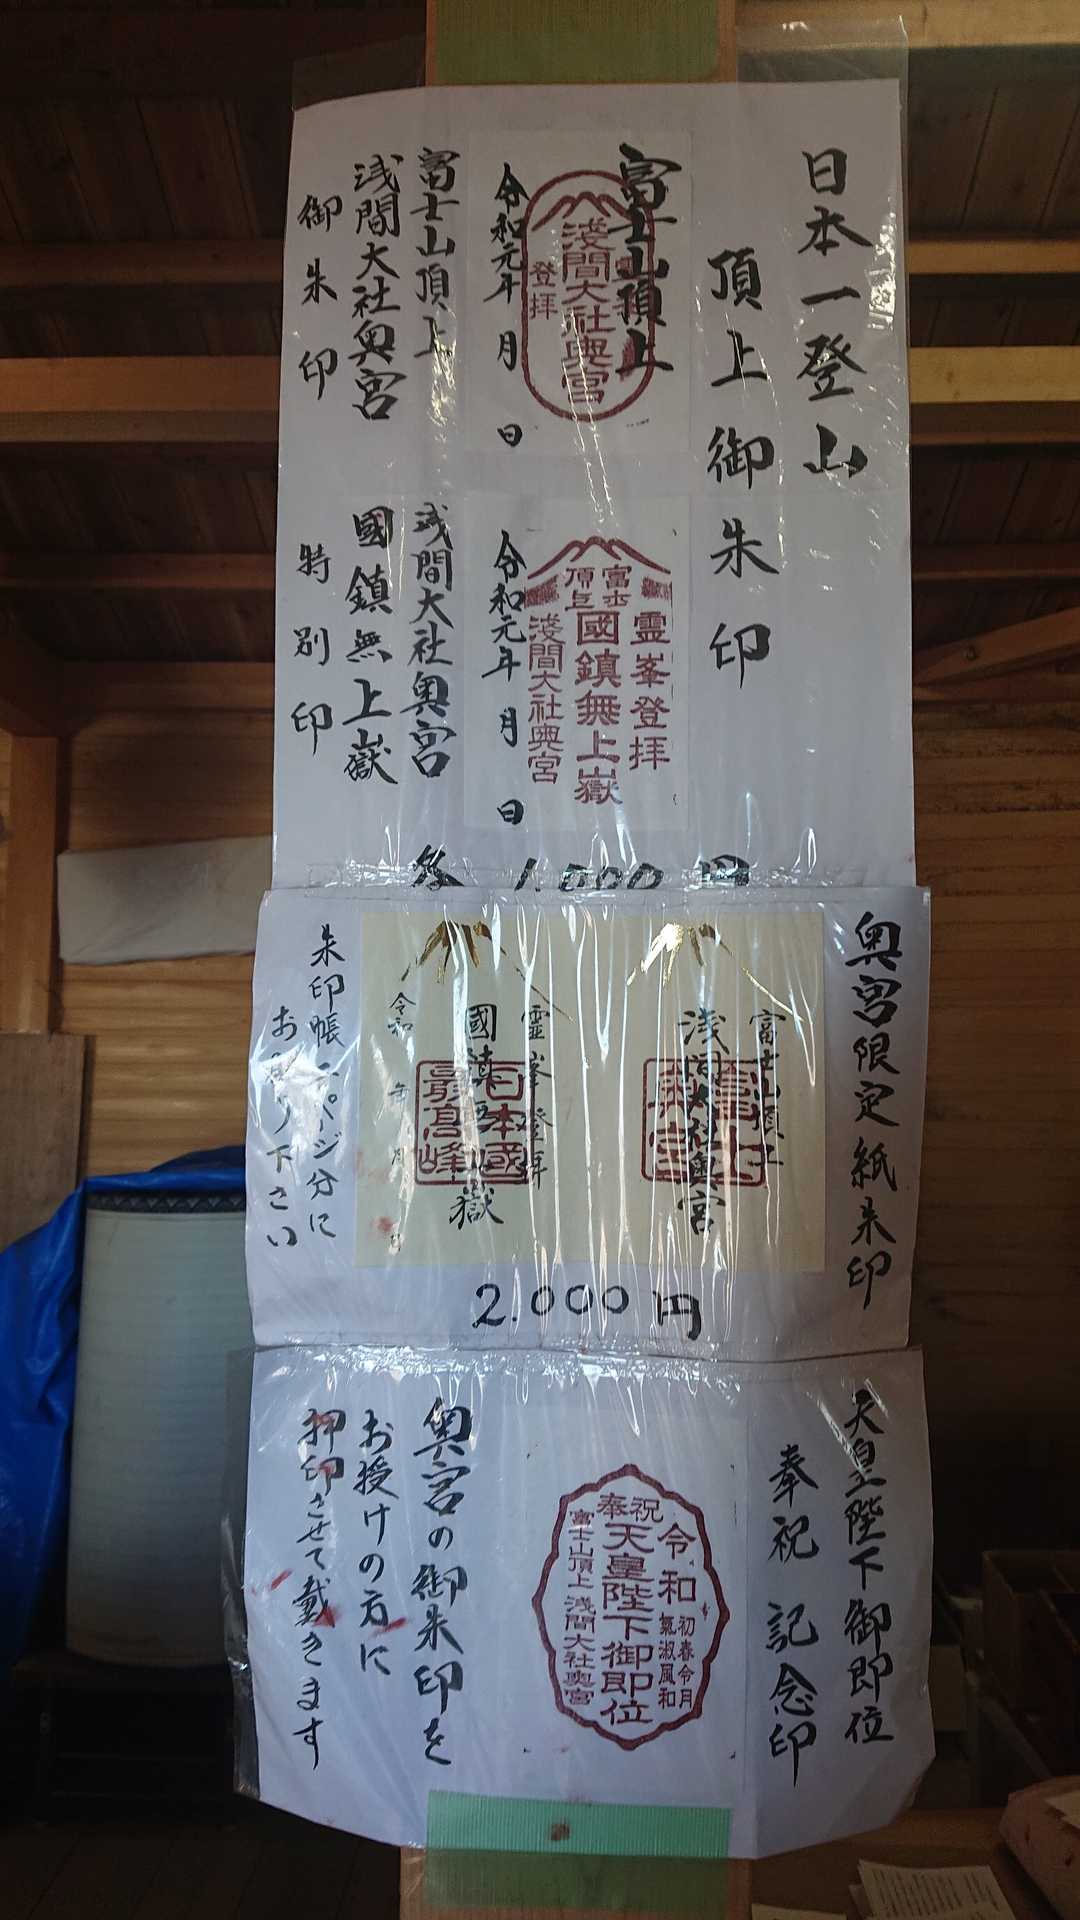 日本一登山
頂上御朱印
富士山頂上
浅間大社奥宮
登拝
令和元年 月 日
富士山頂上
浅間大社奥宮
御朱印
霊峯登拝
富士
頂上
國鎮無上嶽
浅間大社奥宮
令和元年 月 日
浅間大社奥宮
國鎮無上嶽
特別印
各 1.000円
奥宮限定紙朱印
富士山頂上
浅間大社奥宮
霊峯登拝
國鎮無上嶽
日本國
最高峰
令和 年 月 日
朱印帳二ページ分に
お貼り下さい
2.000円
天皇陛下御即位
奉祝記念印
奉祝
令和
初春令月
氣淑風和
天皇陛下御即位
富士山頂上浅間大社奥宮
奥宮の御朱印を
お授けの方に
押印させて戴きます